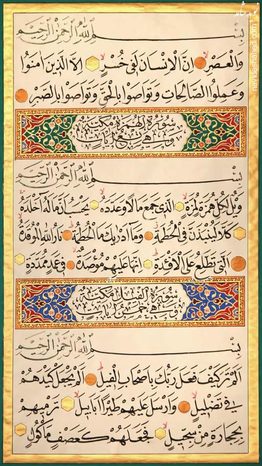 بِسْمِ اللهِ الرَّحْمٰنِ الرَّحِيمِ
وَالْعَصْرِ اِنَّ الْاِنْسَانَ لَفِي خُسْرٍ اِلَّا الَّذِينَ آمَنُوا
وَعَمِلُوا الصَّالِحَاتِ وَتَوَاصَوْا بِالْحَقِّ وَتَوَاصَوْا بِالصَّبْرِ
سُورَةُ الْهُمَزَةِ مَكِّيَّةٌ
وَهِيَ تِسْعُ آيَاتٍ
بِسْمِ اللهِ الرَّحْمٰنِ الرَّحِيمِ
وَيْلٌ لِكُلِّ هُمَزَةٍ لُمَزَةٍ اَلَّذِي جَمَعَ مَالًا وَعَدَّدَهُ يَحْسَبُ اَنَّ مَالَهُ اَخْلَدَهُ
كَلَّا لَيُنْبَذَنَّ فِي الْحُطَمَةِ وَمَا اَدْرَاكَ مَا الْحُطَمَةُ نَارُ اللهِ الْمُوقَدَةُ
اَلَّتِي تَطَّلِعُ عَلَى الْاَفْئِدَةِ اِنَّهَا عَلَيْهِمْ مُؤْصَدَةٌ فِي عَمَدٍ مُمَدَّدَةٍ
سُورَةُ الْفِيلِ مَكِّيَّةٌ
وَهِيَ خَمْسُ آيَاتٍ
بِسْمِ اللهِ الرَّحْمٰنِ الرَّحِيمِ
اَلَمْ تَرَ كَيْفَ فَعَلَ رَبُّكَ بِاَصْحَابِ الْفِيلِ اَلَمْ يَجْعَلْ كَيْدَهُمْ
فِي تَضْلِيلٍ وَاَرْسَلَ عَلَيْهِمْ طَيْرًا اَبَابِيلَ تَرْمِيهِمْ
بِحِجَارَةٍ مِنْ سِجِّيلٍ فَجَعَلَهُمْ كَعَصْفٍ مَأْكُولٍ